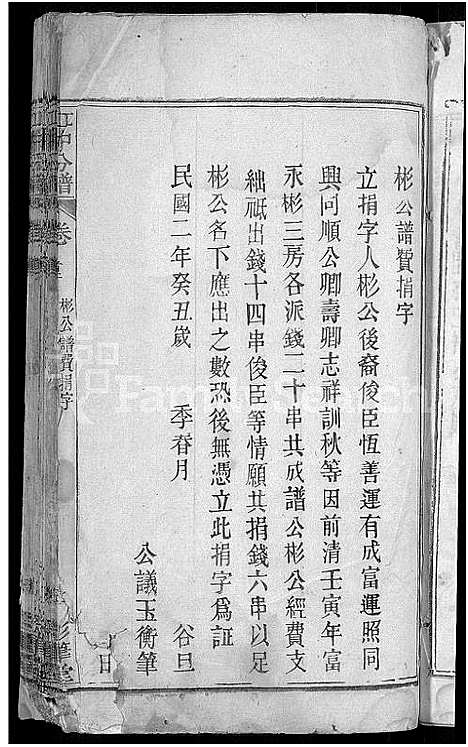 彬公譜費捐字
立捐字人彬公後裔俊臣恆善運有成富運照同
興同順公卿壽卿志祥訓秋等因前清壬寅年富
永彬三房各派錢二十串共成譜公彬公經費支
絀祇出錢十四串俊臣等情願共捐錢六串以足
彬公名下應出之數恐後無憑立此捐字爲証
民國二年癸丑歲 季春月 谷旦
公議玉衡筆
分譜 卷首 彬公譜費捐字